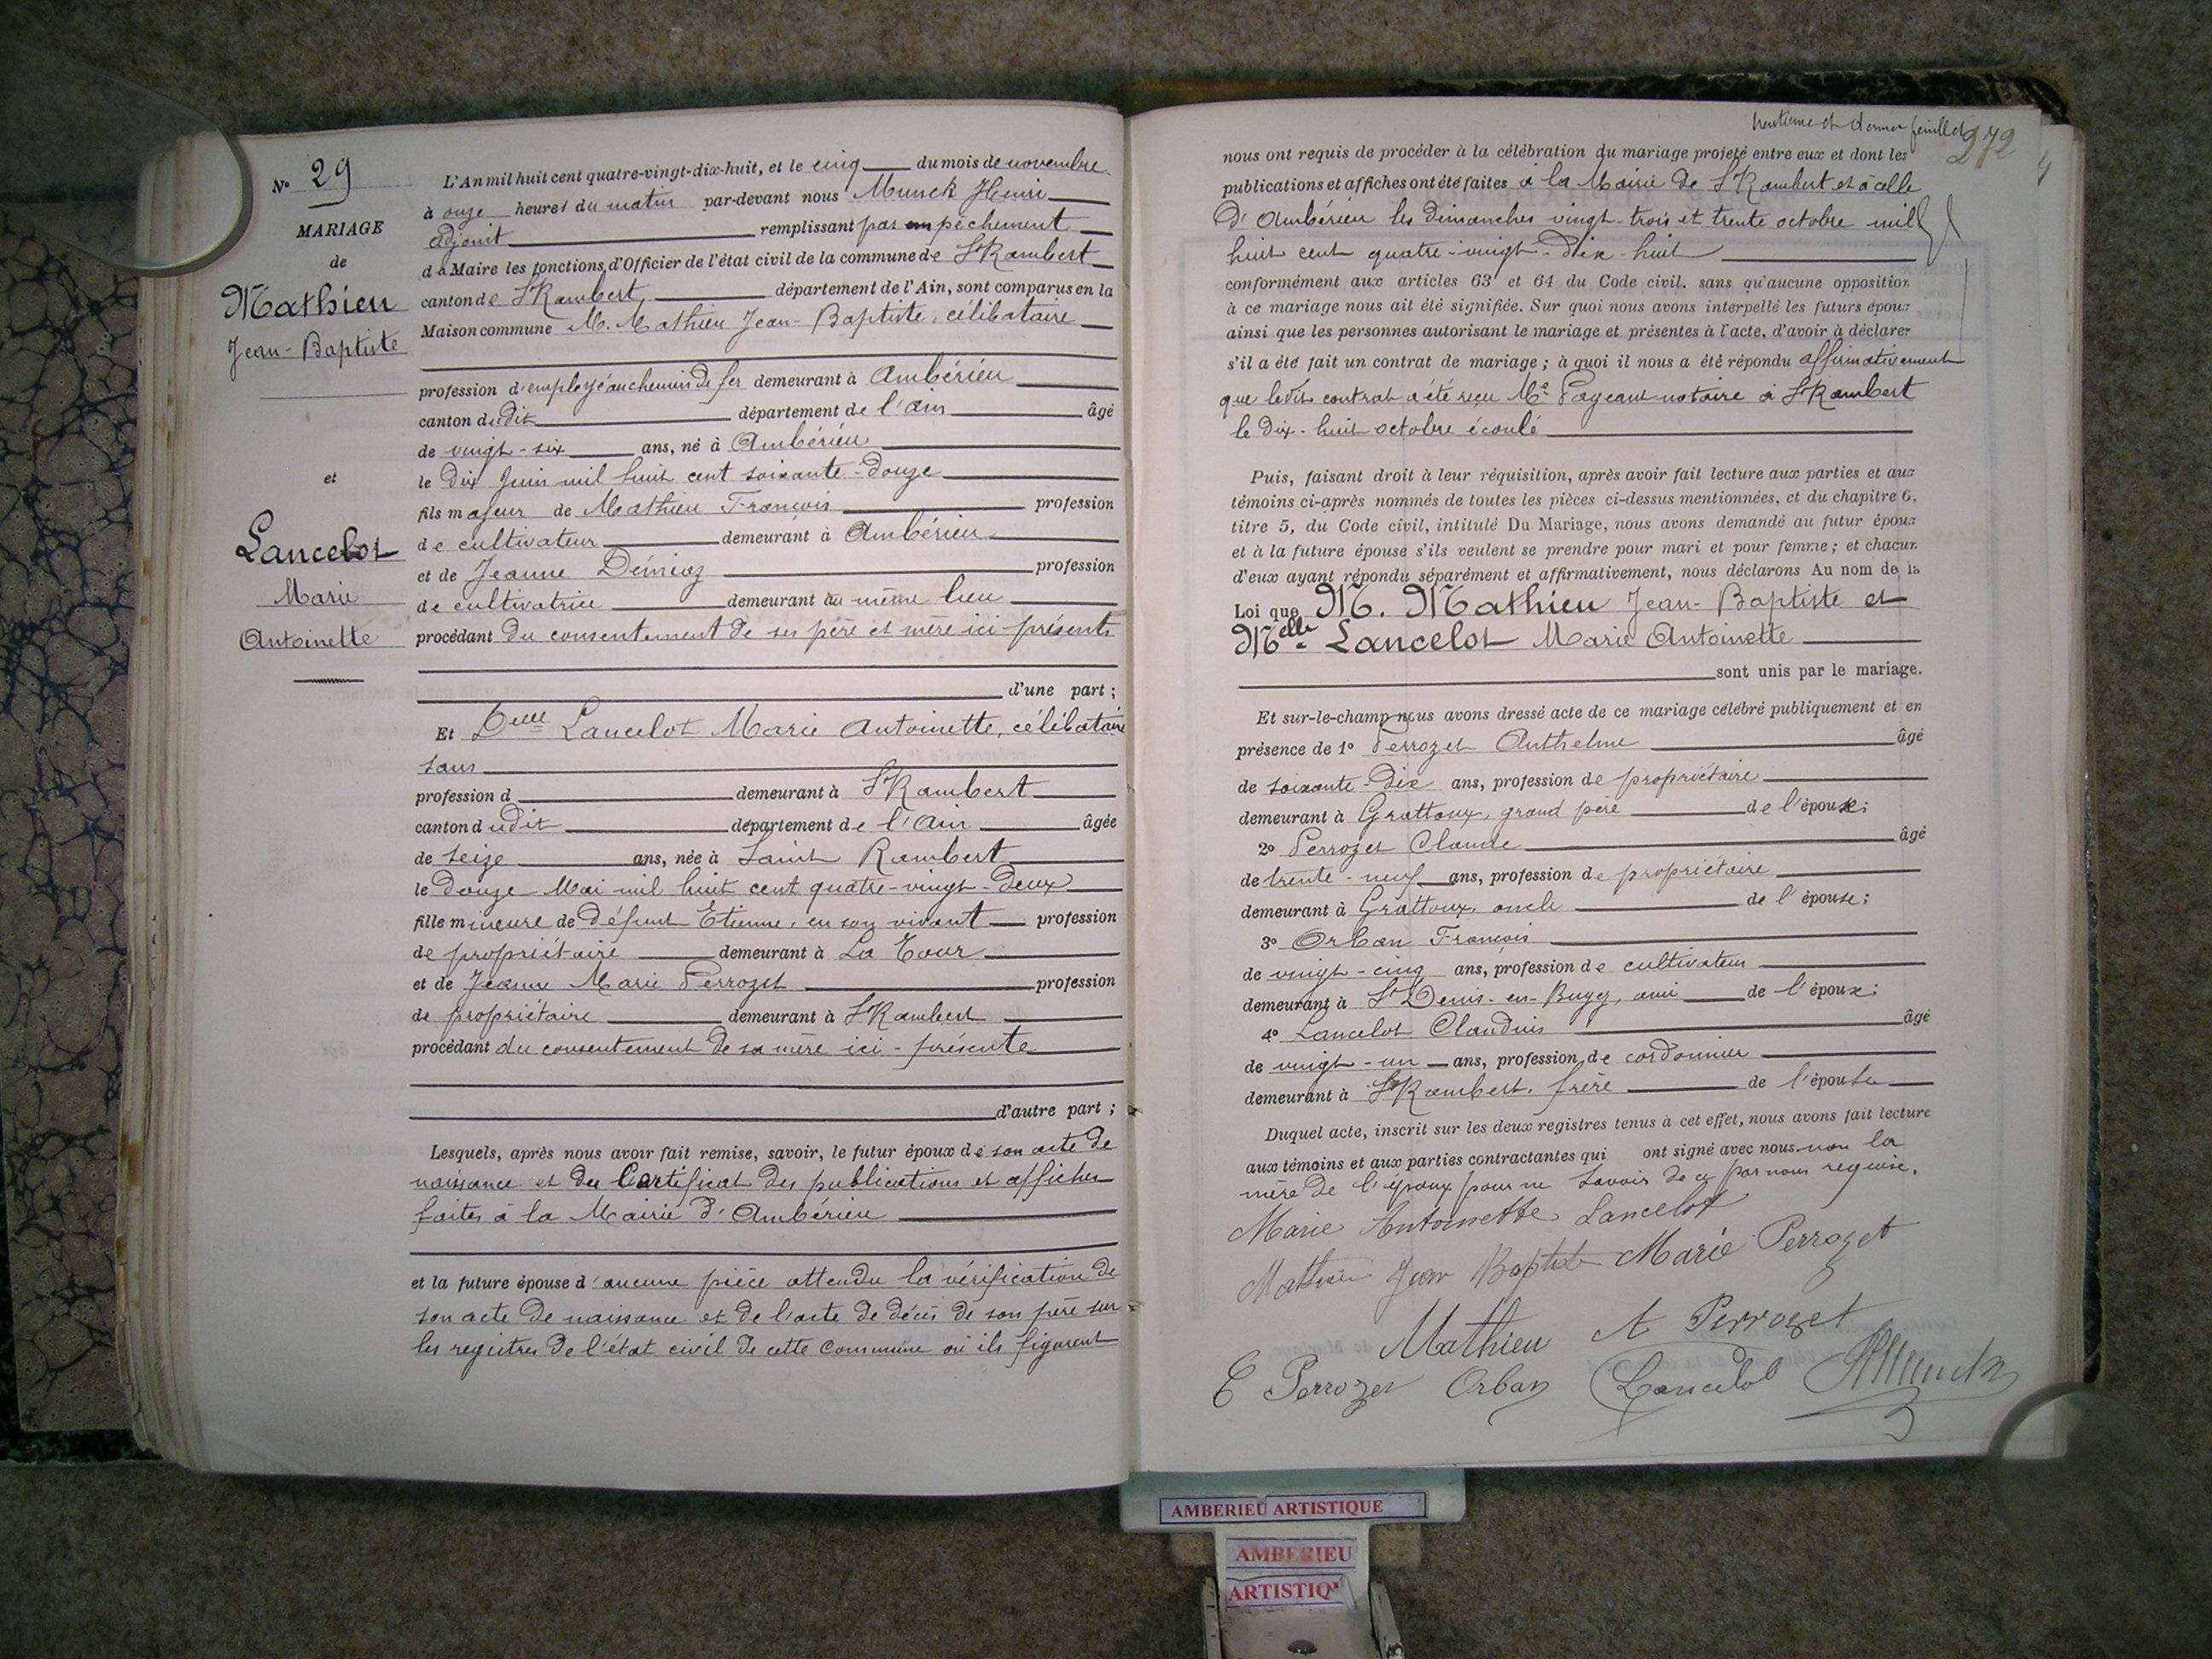 N° 29
MARIAGE
de
Mathieu
Jean-Baptiste
et
Lancelot
Marie
Antoinette
L'An mil huit cent quatre-vingt-dix-huit, et le cinq du mois de novembre
à onze heures du matin par-devant nous Munck Henri
adjoint remplissant par empêchement
de Maire les fonctions d'Officier de l'état civil de la commune de St Rambert
canton de St Rambert, département de l'Ain, sont comparus en la
Maison commune M. Mathieu Jean-Baptiste, célibataire
profession d'employé au chemin de fer demeurant à Ambérieu
canton dudit département de l'ain âgé
de vingt-six ans, né à Ambérieu
le dix Juin mil huit cent soixante-douze
fils majeur de Mathieu François profession
de cultivateur demeurant à Ambérieu
et de Jeanne profession
de cultivatrice demeurant au même lieu
procédant du consentement de ses père et mère ici-présents
d'une part ;
Et Delle Lancelot Marie Antoinette, célibataire
sans
profession d demeurant à St Rambert
canton dudit département de l'Ain âgée
de seize ans, née à Saint Rambert
le douze Mai mil huit cent quatre-vingt-deux
fille mineure de défunt Etienne, en son vivant profession
de propriétaire demeurant à La Tour
et de Jeanne Marie Perrozet profession
de propriétaire demeurant à St Rambert
procédant du consentement de sa mère ici-présente
d'autre part ;
Lesquels, après nous avoir fait remise, savoir, le futur époux de son acte de
naissance et du Certificat des publications et affiches
faites à la Mairie d'Ambérieu
et la future épouse d'aucune pièce attendu la vérification de
son acte de naissance et de l'acte de décès de son père sur
les registres de l'état civil de cette commune où ils figurent
trentième et dernier feuillet
272
nous ont requis de procéder à la célébration du mariage projeté entre eux et dont les
publications et affiches ont été faites à la Mairie de St Rambert et à celle
d'Ambérieu les dimanches vingt-trois et trente octobre mil
huit cent quatre-vingt-dix-huit
conformément aux articles 63 et 64 du Code civil, sans qu'aucune opposition
à ce mariage nous ait été signifiée. Sur quoi nous avons interpellé les futurs époux
ainsi que les personnes autorisant le mariage et présentes à l'acte, d'avoir à déclarer
s'il a été fait un contrat de mariage ; à quoi il nous a été répondu affirmativement
que ledit contrat a été reçu Me Pageaut notaire à St Rambert
le dix-huit octobre écoulé
Puis, faisant droit à leur réquisition, après avoir fait lecture aux parties et aux
témoins ci-après nommés de toutes les pièces ci-dessus mentionnées, et du chapitre 6,
titre 5, du Code civil, intitulé Du Mariage, nous avons demandé au futur époux
et à la future épouse s'ils veulent se prendre pour mari et pour femme ; et chacun
d'eux ayant répondu séparément et affirmativement, nous déclarons Au nom de la
Loi que M. Mathieu Jean-Baptiste et
Melle Lancelot Marie Antoinette
sont unis par le mariage.
Et sur-le-champ nous avons dressé acte de ce mariage célébré publiquement et en
présence de 1° Perrozet Anthelme âgé
de soixante-dix ans, profession de propriétaire
demeurant à Grattoux, grand père de l'épouse;
2° Perrozet Claude âgé
de trente-neuf ans, profession de propriétaire
demeurant à Grattoux, oncle de l'épouse;
3° Orban François
de vingt-cinq ans, profession de cultivateur
demeurant à St Denis-en-Bugey, ami de l'époux;
4° Lancelot Claudius âgé
de vingt-un ans, profession de cordonnier
demeurant à St Rambert, frère de l'épouse
Duquel acte, inscrit sur les deux registres tenus à cet effet, nous avons fait lecture
aux témoins et aux parties contractantes qui ont signé avec nous non la
mère de l'époux pour ne savoir de ce par nous requise.
Marie Antoinette Lancelot
Mathieu Jean Baptiste Marie Perrozet
Mathieu A Perrozet
C Perrozet Orban Lancelot HMunck
AMBERIEU ARTISTIQUE
AMBERIEU
ARTISTIQ